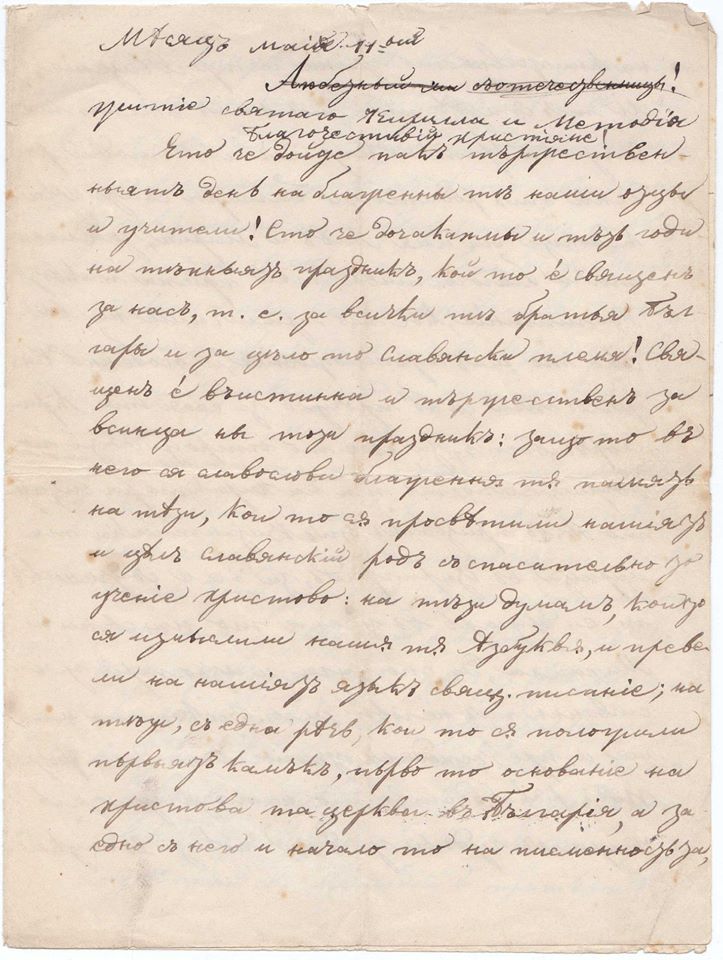 Мѣсяцъ маій 11-ый
Любезный ми съотечественницы!
житіе святаго Кирилла и Методія
Благочестивій христіяне!
Ето че дойде пакъ тържествен-
ныятъ день на блаженны тѣ наши отцы
и учители! Ето че дочакахмы и тъзъ годи
на тѣхныятъ праздникъ, кой то é священъ
за насъ, т. е. за всички тѣ братья Бъл-
гары и за цѣло то Славянски племя! Свя-
щенъ é въистинна и тържественъ за
всинца ны този праздникъ: защо то въ
него ся славослови блаженнѫ тѫ память
на тѣзи, кои то сѫ просвѣтили нашіятъ
и цѣлъ Славянскій родъ съ спасително то
ученіе Христово: на тѣзи думамъ, коиту
сѫ измыслили нашѫ тѫ Азбукѫ, и преве-
ли на нашіятъ языкъ свящ. писаніе; на
тѣзи, съ една рѣч, кои то сѫ положили
първыятъ камъкъ, първо то основаніе на
Христова та церквы въ Българіѫ, а за
едно съ него и начало то на писменностьта,